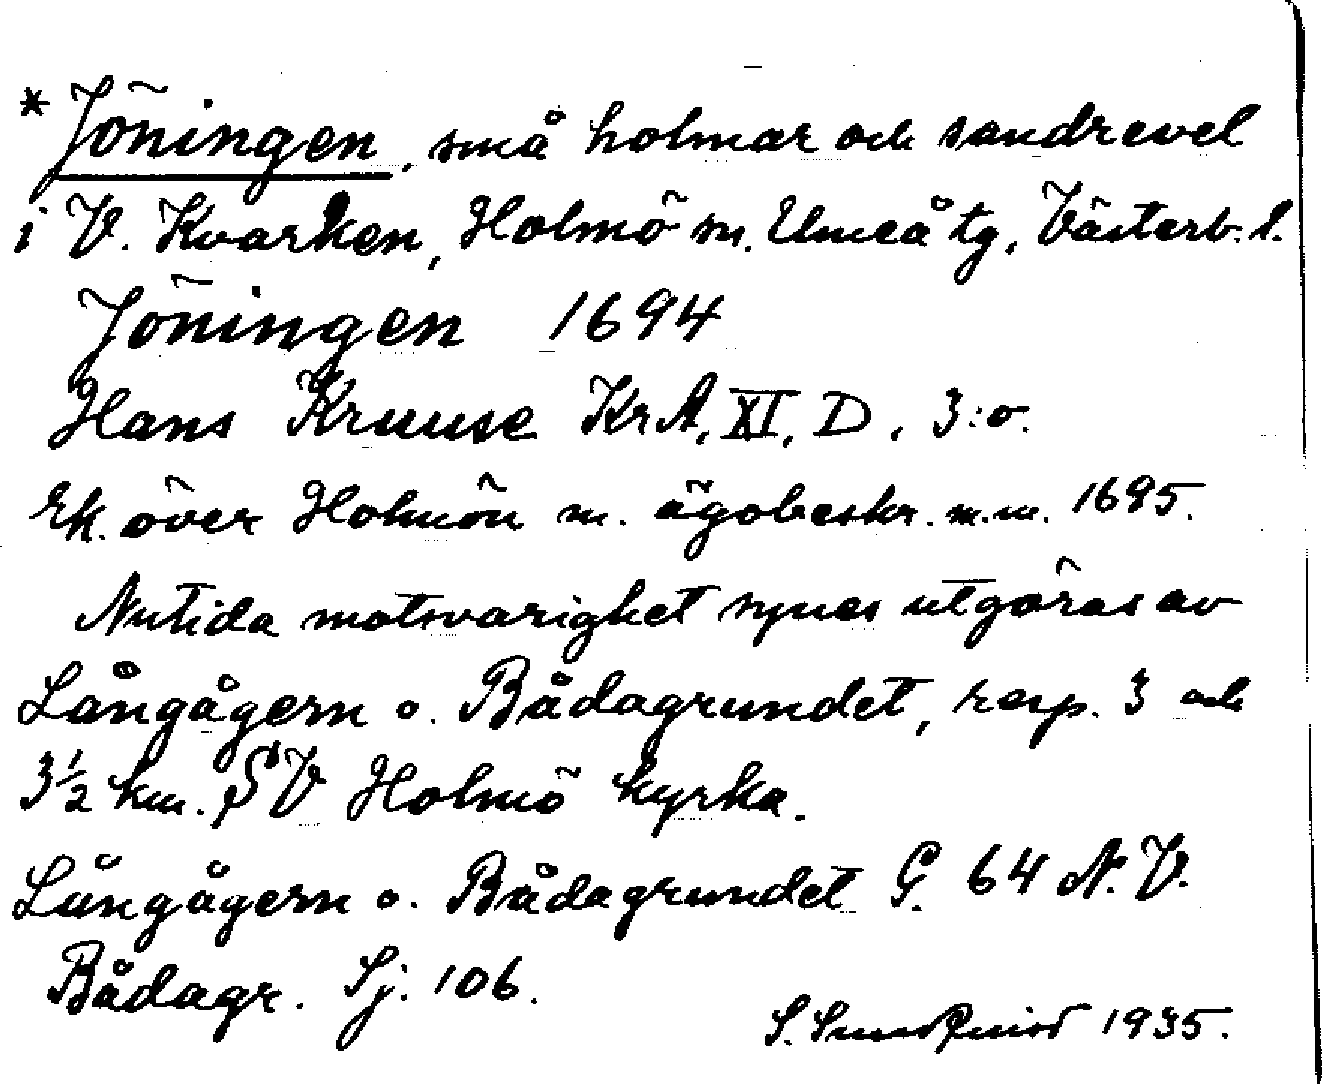 * Jöningen, små holmar och sandrevel
i V. Kvarken, Holmö sn. Umeå tg, Västerb. l.
Jöningen 1694
Hans Kruuse KrA, XI, D, 3:o.
Ek. över Holmön m. ägobeskr. m.m. 1695.
Nutida motsvarighet synes utgöras av
Långågern o. Bådagrundet, resp. 3 och
3½ km. SV Holmö kyrka.
Långågern o. Bådagrundet G. 64 N.V.
Bådagr. Sj. 106.
S. Sundquist 1935.